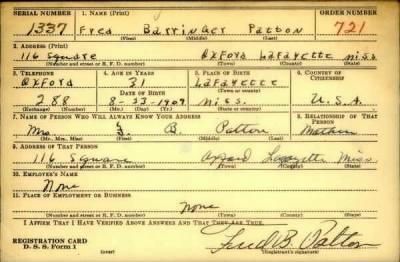 SERIAL NUMBER 1. NAME (Print) ORDER NUMBER
1337 Fred Barringer Patton 721
(First) (Middle) (Last)
2. ADDRESS (Print)
116 Square Oxford Lafayette Miss
(Number and street or R. F. D. number) (Town) (County) (State)
3. TELEPHONE 4. AGE IN YEARS 5. PLACE OF BIRTH 6. COUNTRY OF CITIZENSHIP
Oxford 31 Lafayette
DATE OF BIRTH (Town or county)
288 8-23-1909 Miss. U.S.A.
(Exchange) (Number) (Mo.) (Day) (Yr.) (State or country)
7. NAME OF PERSON WHO WILL ALWAYS KNOW YOUR ADDRESS 8. RELATIONSHIP OF THAT PERSON
Mrs B. Patton Mother
(Mr., Mrs., Miss) (First) (Middle) (Last)
9. ADDRESS OF THAT PERSON
116 Square Oxford Lafayette Miss.
(Number and street or R. F. D. number) (Town) (County) (State)
10. EMPLOYER'S NAME
None
11. PLACE OF EMPLOYMENT OR BUSINESS
None
(Number and street or R. F. D. number) (Town) (County) (State)
I AFFIRM THAT I HAVE VERIFIED ABOVE ANSWERS AND THAT THEY ARE TRUE.
REGISTRATION CARD
D. S. S. Form 1 (over) Fred B. Patton
(Registrant's signature)